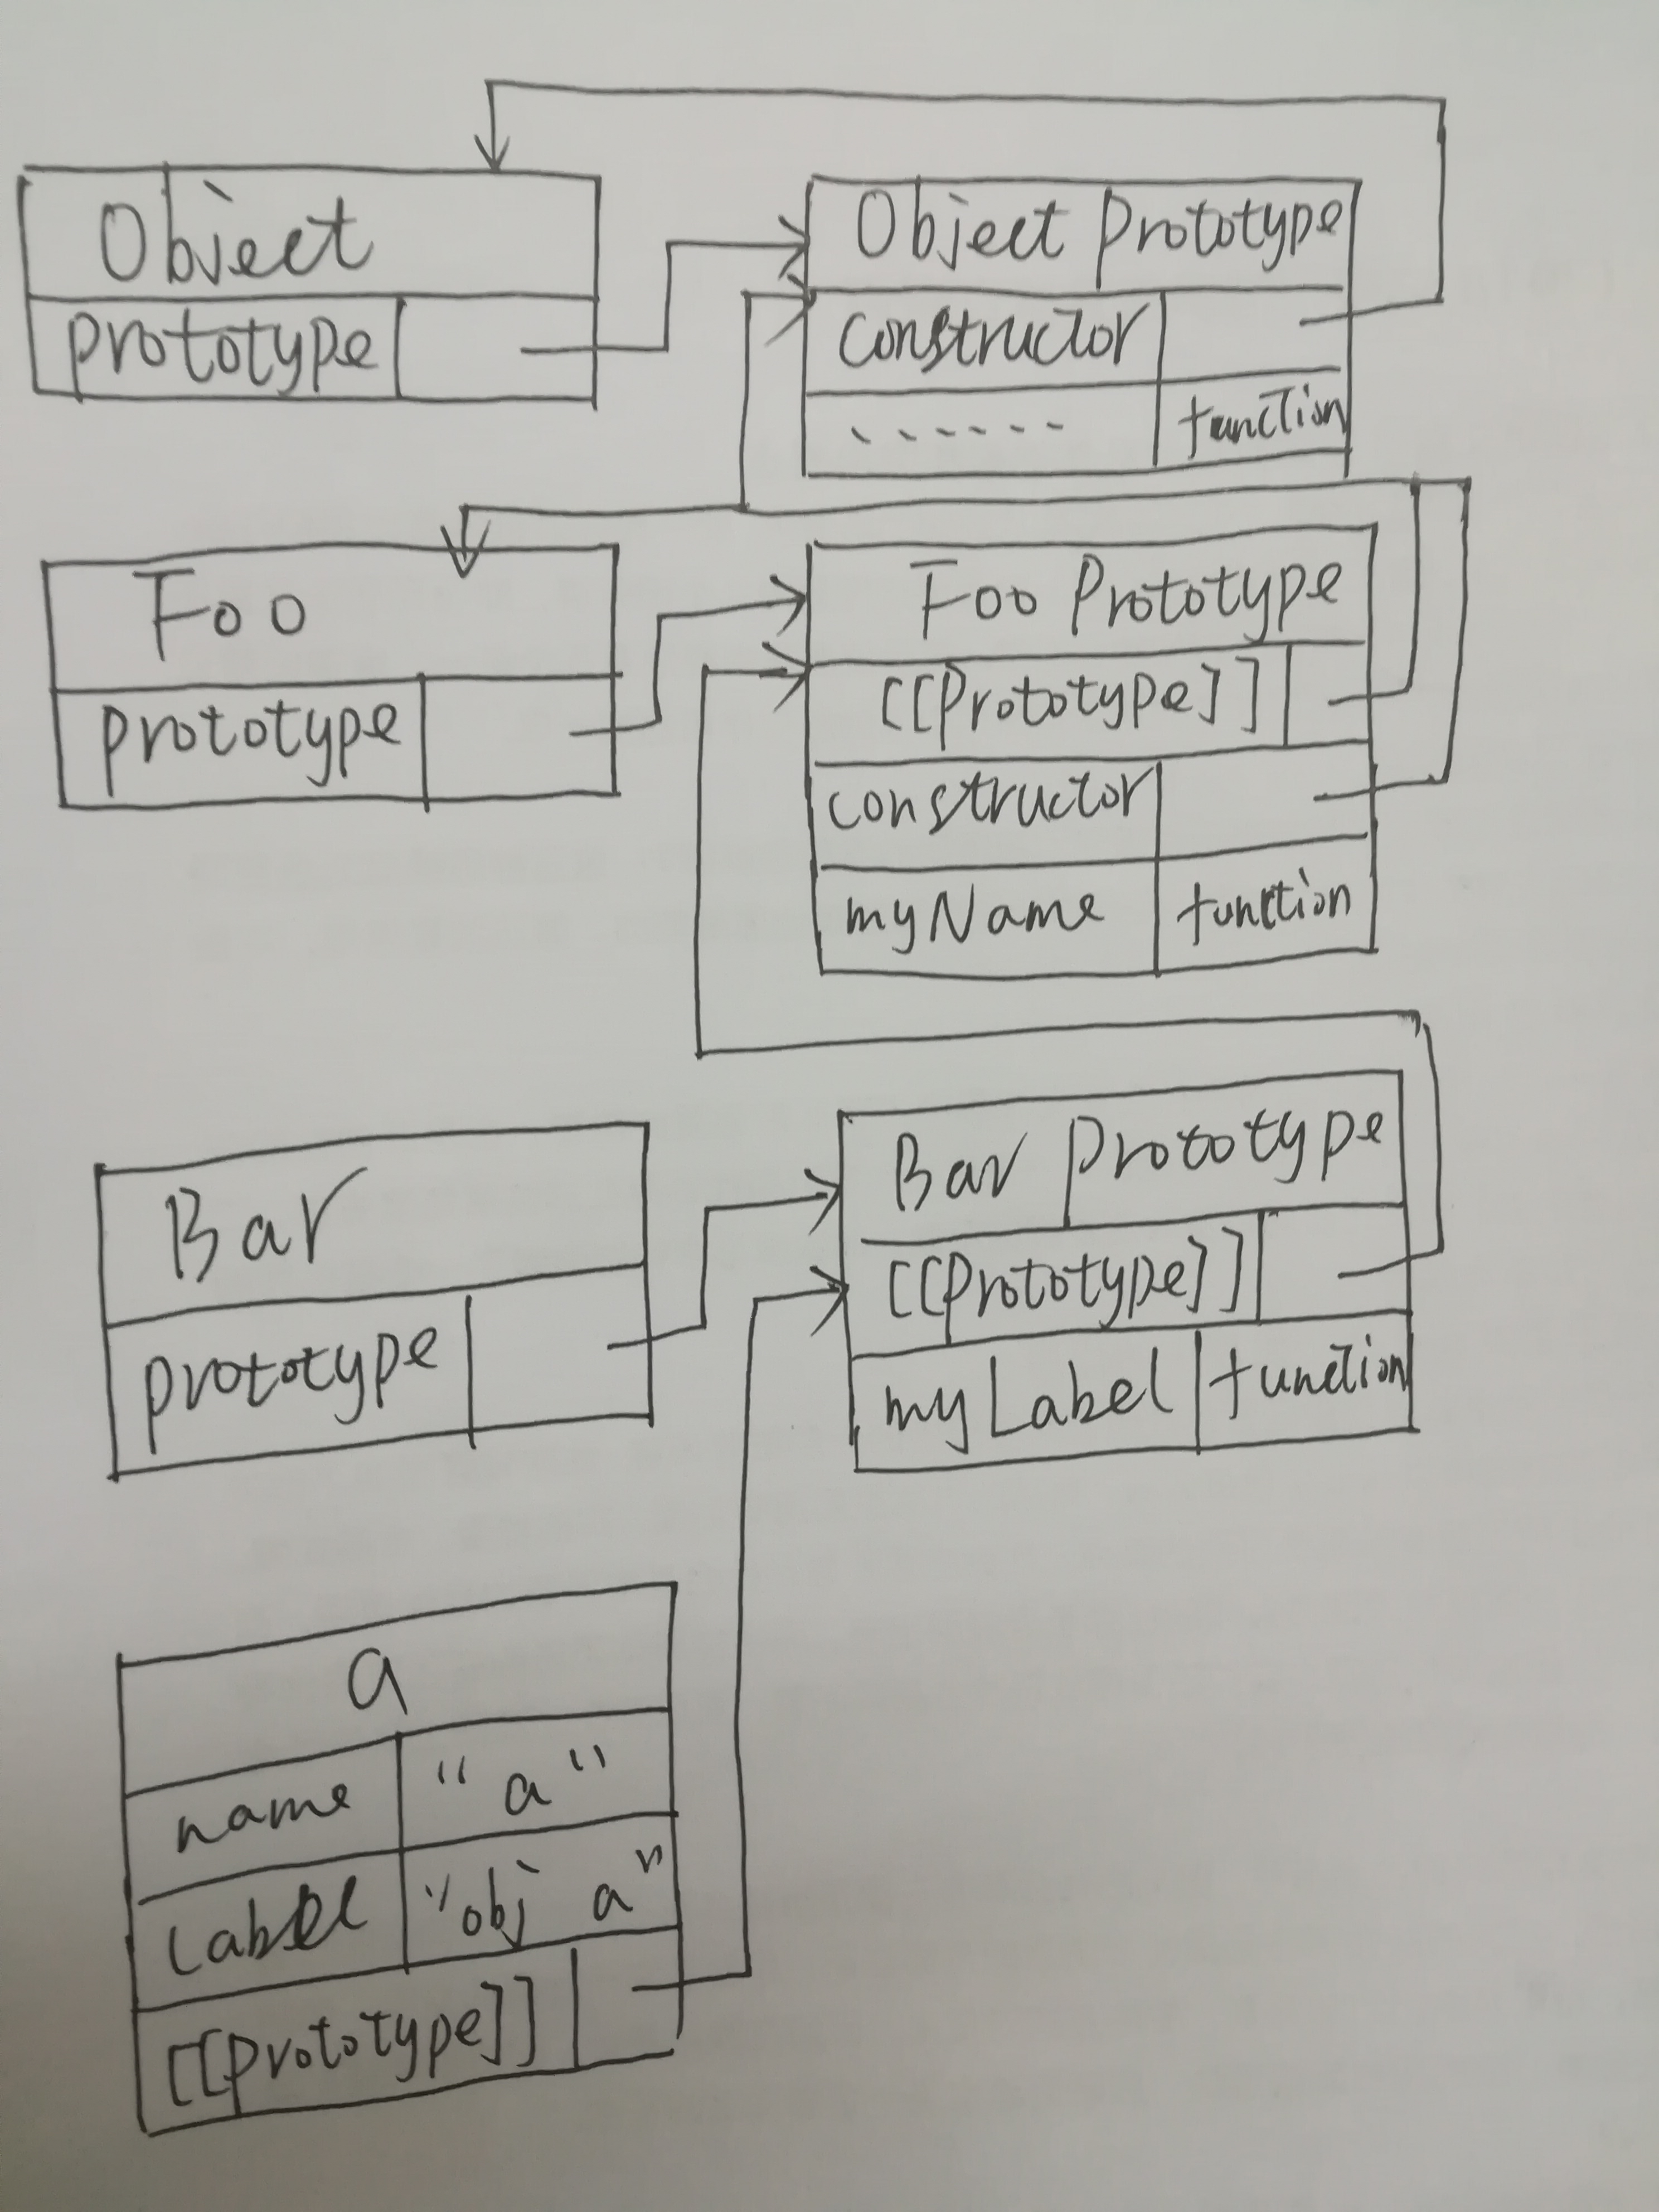 Object
prototype
Object Prototype
constructor
------ function
Foo
prototype
Foo Prototype
[[Prototype]]
constructor
myName function
Bar
prototype
Bar Prototype
[[Prototype]]
myLabel function
a
name "a"
Label "obj a"
[[Prototype]]